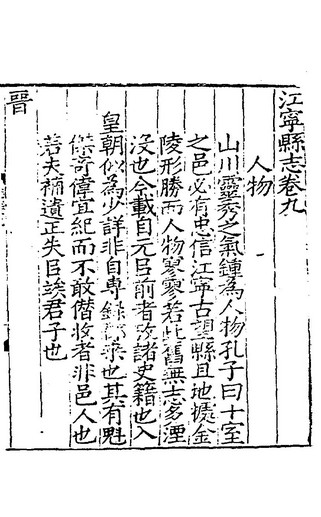 江寧縣志卷九
人物
山川靈秀之氣鍾為人物孔子曰十室
之邑必有忠信江寧古望縣且地據金
陵形勝而人物寥寥若此舊無志多湮
沒也今載自元已前者攷諸史籍也入
皇朝似為少詳非自專錄郡乘也其有魁
傑奇偉宜紀而不敢僭收者非邑人也
若夫補遺正失以俟君子也
晉